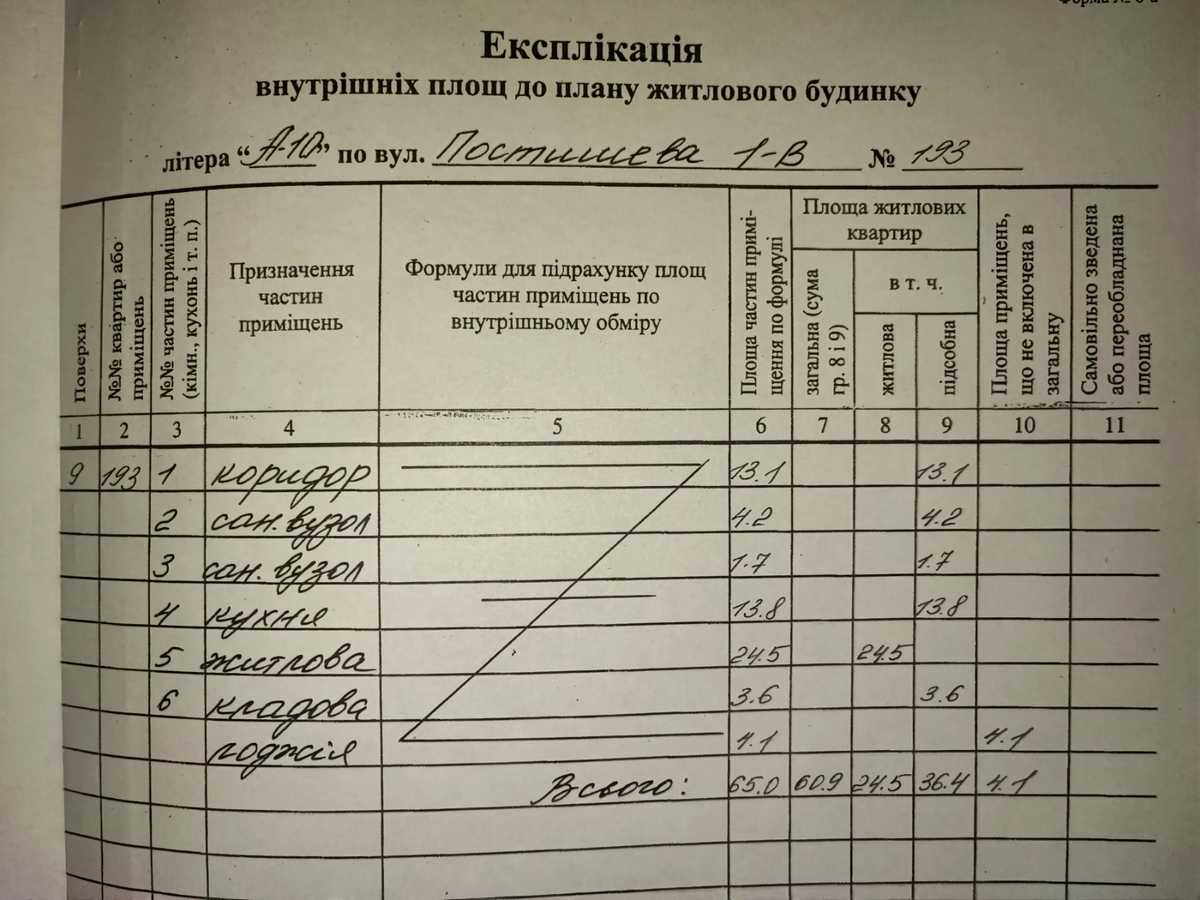 Форма № 6-а
Експлікація
внутрішніх площ до плану житлового будинку
літера “А-10” по вул. Постишева 1-В № 193
Поверхи
№№ квартир або приміщень
№№ частин приміщень (кімн., кухонь і т. п.)
Призначення частин приміщень
Формули для підрахунку площ частин приміщень по внутрішньому обміру
Площа частин примі-щення по формулі
Площа житлових квартир
загальна (сума гр. 8 і 9)
в т. ч.
житлова
підсобна
Площа приміщень, що не включена в загальну
Самовільно зведена або переобладнана площа
1 2 3 4 5 6 7 8 9 10 11
9 193 1 коридор 13.1 13.1
2 сан.вузол 4.2 4.2
3 сан.вузол 1.7 1.7
4 кухня 13.8 13.8
5 житлова 24.5 24.5
6 кладова 3.6 3.6
лоджія 4.1 4.1
Всього: 65.0 60.9 24.5 36.4 4.1